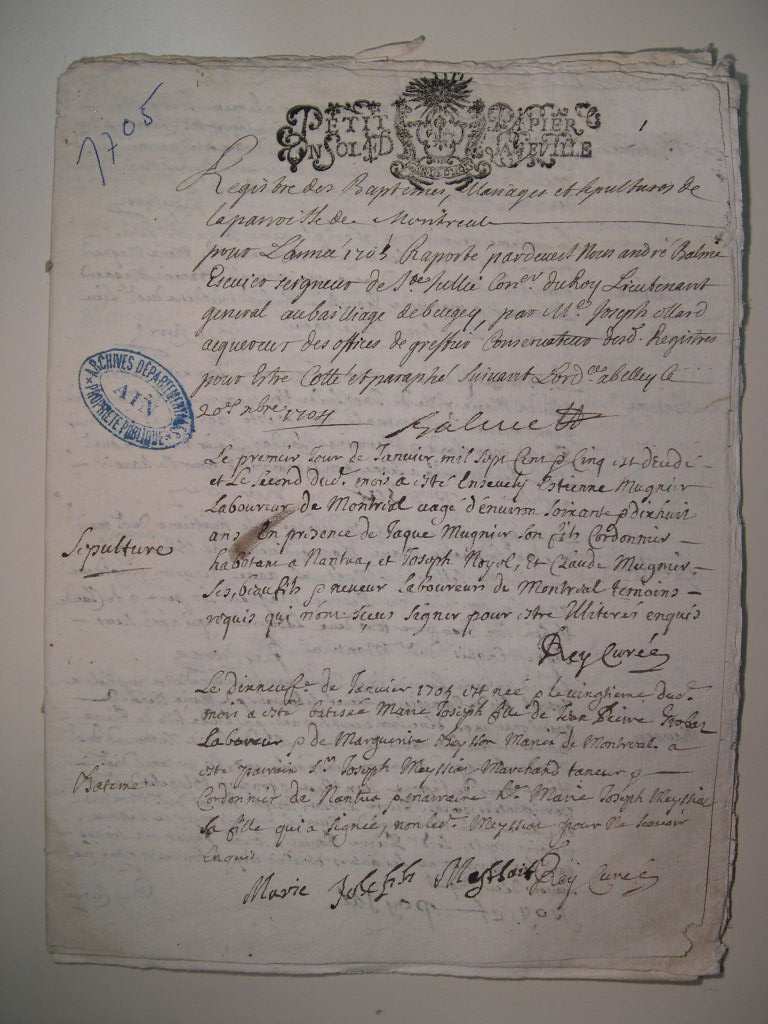 1705
PETIT PAPIER
EN SOL LD LA FEVILLE
1
Registre des Baptemes, Mariages et sepultures de
la parroisse de Montreal
pour L'année 1705 Raporté pardevant Nous andré Balme
Escuier seigneur de Ste Jullie Coner du Roy Lieutenant
general au bailliage de bugey, par Me Joseph
acquereur des offices de greffier Conservateur desd. Registres
pour Estre Cotté et paraphé suivant L'ord. a belley le
20e xbre 1704
Balme
ARCHIVES DÉPARTEMENTALES
AIN
PROPRIÉTÉ PUBLIQUE
Le premier Jour de Janvier mil sept Cent & Cinq est décedé
et Le second dud. mois a esté Ensevely Estienne Mugnier
Laboureur de Montréal aagé d'environ soixante & dixhuit
ans En présence de Jaque Mugnier son fils Cordonnier
Sépulture
habitant a Nantua, et Joseph Noyol, Et Claude Mugnier
ses, beaufils & neveur laboureurs de Montréal témoins
requis qui n'ont sçeus signer pour estre Illiterés enquis
Rey Curée
Le dixneufe de Janvier 1705 est née & le vingtieme dud.
mois a esté batisée Marie Joseph fille de Jean
Laboureur & de Marguerite Mariés de Montréal a
esté parrain Sr Joseph Meyssia Marchand taneur &
Bateme
Cordonnier de Nantua & marraine Marie Joseph Meyssia
sa fille qui a signée, non led. Meyssiat pour ne scavoir
Enquis
Marie Joseph Rey Curée